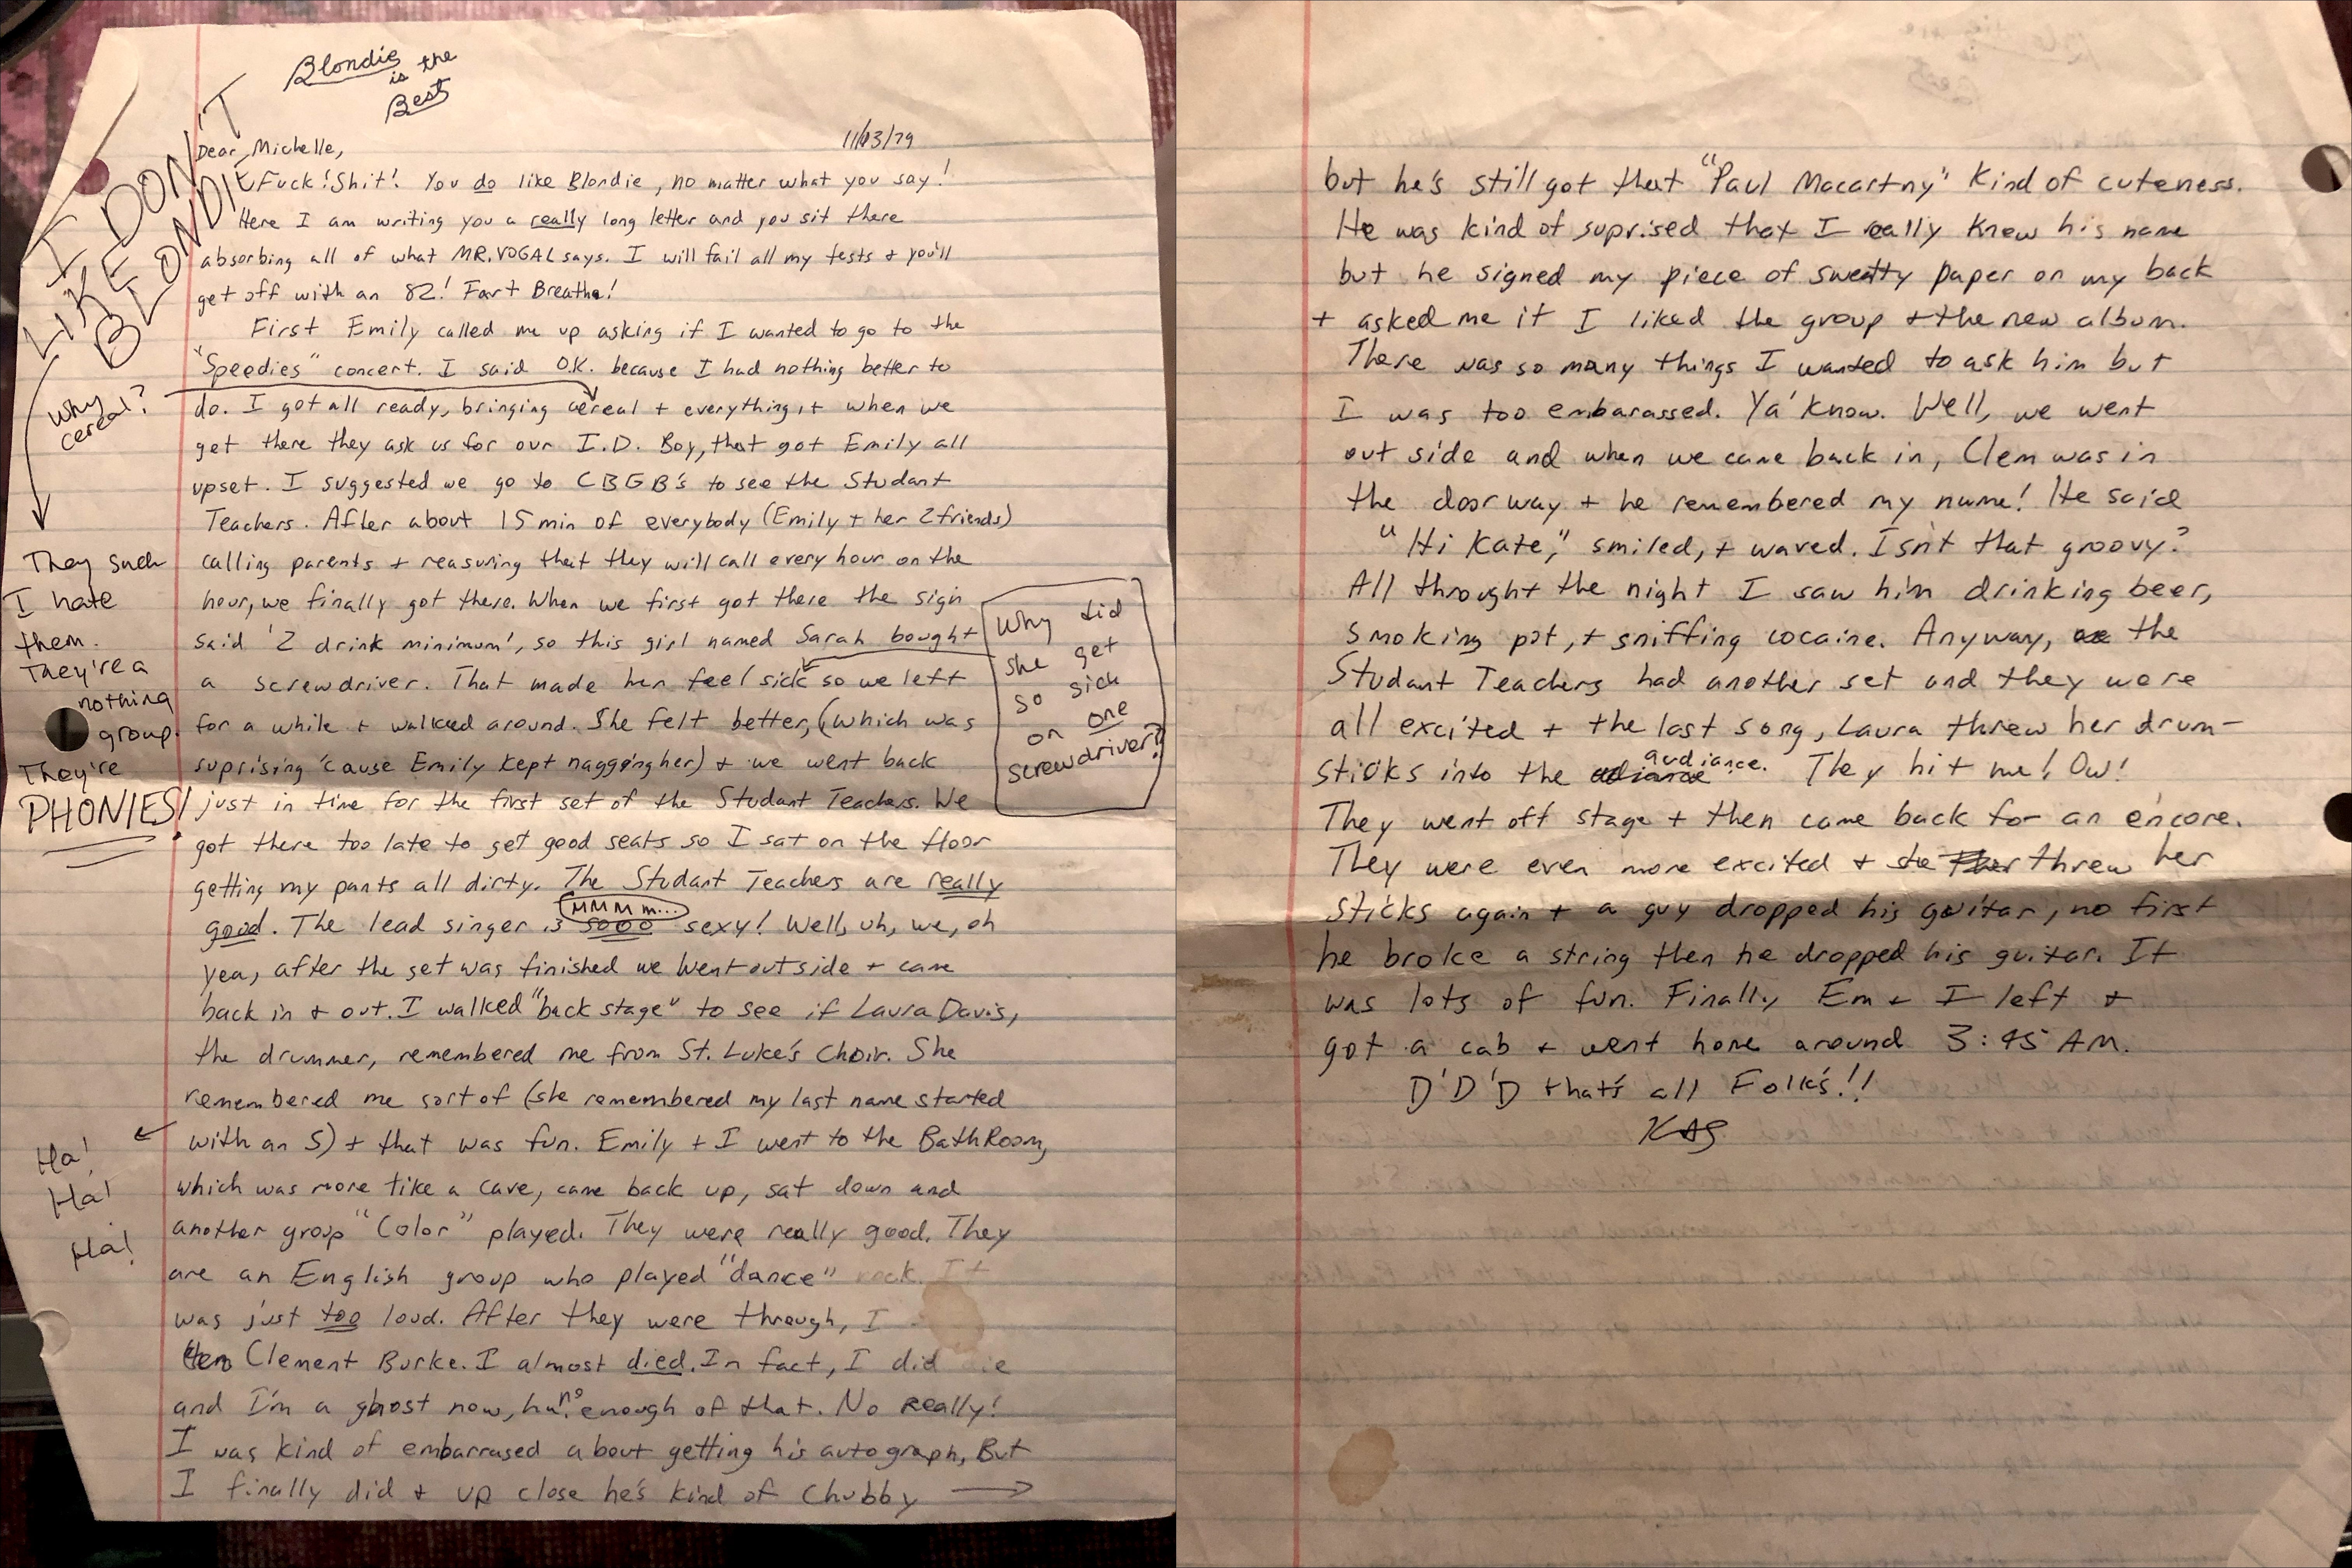 Blondie
is the
Best
11/13/79
Dear Michelle,
Fuck! Shit! You do like Blondie, no matter what you say!
Here I am writing you a really long letter and you sit there
absorbing all of what MR. VOGAL says. I will fail all my tests + you'll
get off with an 82! Fart Breathe!
First Emily called me up asking if I wanted to go to the
"Speedies" concert. I said O.K. because I had nothing better to
do. I got all ready, bringing cereal + everything, + when we
get there they ask us for our I.D. Boy, that got Emily all
upset. I suggested we go to CBGB's to see the Studant
Teachers. After about 15 min of everybody (Emily + her 2 friends)
calling parents + reasuring that they will call every hour on the
hour, we finally got there. When we first got there the sign
said '2 drink minimum', so this girl named Sarah bought
a screwdriver. That made her feel sick so we left
for a while + walked around. She felt better, (which was
suprising 'cause Emily kept nagging her) + we went back
just in time for the first set of the Studant Teachers. We
got there too late to get good seats so I sat on the floor
getting my pants all dirty. The Studant Teachers are really
good. The lead singer is sooo sexy! Well, uh, we, oh
MMMm...
yea, after the set was finished we went outside + came
back in + out. I walked "back stage" to see if Laura Davis,
the drummer, remembered me from St. Luke's Choir. She
remembered me sort of (she remembered my last name started
with an S) + that was fun. Emily + I went to the BathRoom,
which was more like a cave, came back up, sat down and
another group "Color" played. They were really good. They
are an English group who played "dance" rock. It
was just too loud. After they were through, I
Clement Burke. I almost died. In fact, I did die
and I'm a ghost now, no enough of that. No Really!
I was kind of embarrased about getting his autograph, But
I finally did + up close he's kind of Chubby →
I DON'T
LIKE
BLONDIE
They suck
I hate
them.
They're a
nothing
group.
They're
PHONIES!
Why
cereal?
Why did
she get
so sick
on one
screwdriver?
Ha!
Ha!
Ha!
but he's still got that "Paul Macartny" kind of cuteness.
He was kind of suprised that I really knew his name
but he signed my piece of sweatty paper on my back
+ asked me if I liked the group + the new album.
There was so many things I wanted to ask him but
I was too embarassed. Ya' know. Well, we went
out side and when we came back in, Clem was in
the doorway + he remembered my name! He said
"Hi Kate," smiled, + waved. Isn't that groovy?
All throught the night I saw him drinking beer,
smoking pot, + sniffing cocaine. Anyway, the
Studant Teachers had another set and they were
all excited + the last song, Laura threw her drum-
sticks into the audiance. They hit me! Ow!
They went off stage + then came back for an encore.
They were even more excited + she threw her
sticks again + a guy dropped his guitar, no first
he broke a string then he dropped his guitar. It
was lots of fun. Finally Em + I left +
got a cab + went home around 3:45 AM.
D'D'D that's all Folk's!!
KAS